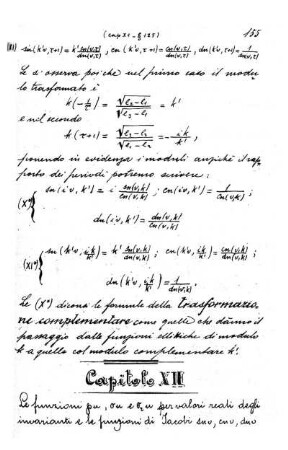 (cap XI - § 125) 155
(XI) sn(k'v,τ+1) = k' sn(v,τ)/dn(v,τ), cn(k'v,τ+1) = cn(v,τ)/dn(v,τ), dn(k'v,τ+1) = 1/dn(v,τ)
Se si osserva poi che nel primo caso il modu
lo trasformato è
k(-1/τ) = √(e₂-e₁)/√(e₂-e₁) = k'
e nel secondo
k(τ+1) = √(e₂-e₁)/√(e₁-e₂) = -ik/k',
ponendo in evidenza i moduli anzichè il rap
porto dei periodi potremo scrivere:
(X*) { sn(iv,k') = i sn(v,k)/cn(v,k); cn(iv,k') = 1/cn(v,k);
dn(iv,k') = dn(v,k)/cn(v,k)
(XI*) { sn(k'v,ik/k') = k' sn(v,k)/dn(v,k); cn(k'v,ik/k') = cn(v,k)/dn(v,k);
dn(k'v,ik/k') = 1/dn(v,k).
Le (X*) diconsi le formule della trasformazio
ne complementare come quelle che danno il
passaggio dalle funzioni ellittiche di modulo
k a quello col modulo complementare k'.
Capitolo XII
Le funzioni pu, σu e ζu per valori reali degli
invarianti e le funzioni di Jacobi snv, cnv, dnv